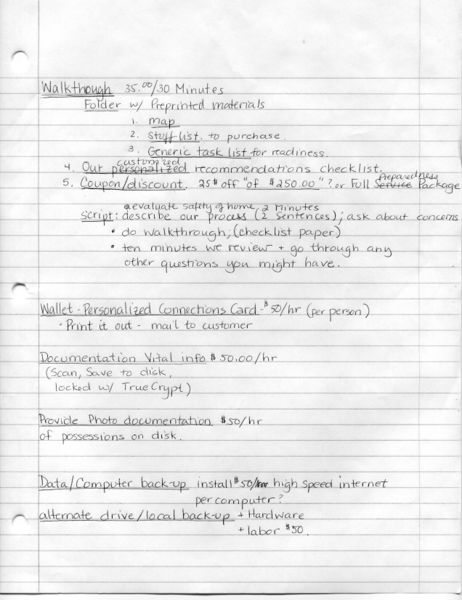 Walkthough 35.00/30 Minutes
Folder w/ Preprinted materials
1. map
2. Stuff list to purchase.
3. Generic task list for readiness.
customized
4. Our personalized recommendations checklist.
Preparedness
5. Coupon/discount. 25$ off "of $250.00"? or Full Service Package
evaluate safety of home, 2 minutes
Script: describe our process (2 sentences); ask about concerns
• do walkthrough; (checklist paper)
• ten minutes we review + go through any
other questions you might have.
Wallet - Personalized Connections Card - $50/hr (per person)
• Print it out - mail to customer
Documentation Vital info $50.00/hr
(Scan, Save to disk,
locked w/ TrueCrypt)
Provide Photo documentation $50/hr
of possessions on disk.
Data/Computer back-up install $50/hr high speed internet
per computer?
alternate drive/local back-up + Hardware
+ labor $50.